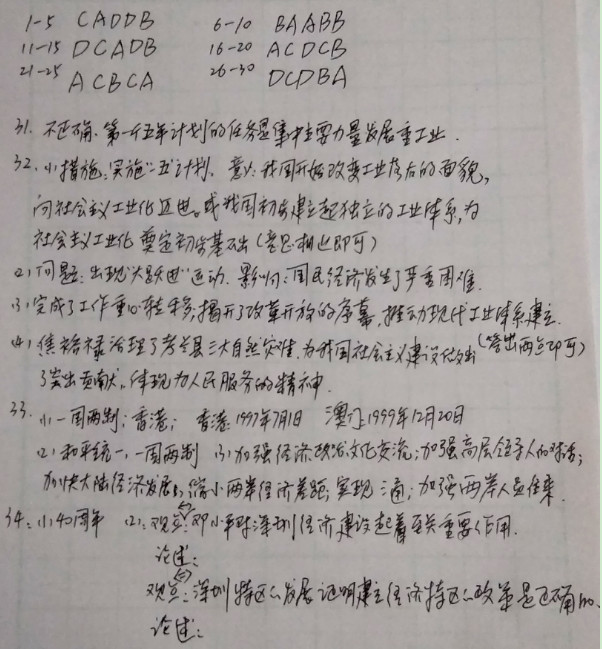 1-5 CADDB 6-10 BAABB
11-15 DCADB 16-20 ACDCB
21-25 ACBCA 26-30 DCDBA
31. 不正确. 第一个五年计划的任务是集中主要力量发展重工业.
32. (1) 措施: 实施一五计划. 意义: 我国开始改变工业落后的面貌,
向社会主义工业化迈进。或我国初步建立起独立的工业体系,为
社会主义工业化奠定初步基础 (意思相近即可)
(2) 问题: 出现"大跃进"运动. 影响: 国民经济发生了严重困难.
(3) 完成了工作重心转移; 揭开了改革开放的序幕, 推动现代工业体系建立.
(4) 焦裕禄治理了兰考县三大自然灾害. 为我国社会主义建设做出 (答出两点即可)
了突出贡献. 体现为人民服务的精神.
33. (1) 一国两制; 香港; 香港: 1997年7月1日 澳门: 1999年12月20日
(2) 和平统一, 一国两制 (3) 加强经济政治文化交流; 加强高层领导人的对话;
加快大陆经济发展, 缩小两岸经济差距; 实现三通; 加强两岸人员往来.
34: (1) 40周年 (2): 观点: 邓小平对深圳经济建设起着至关重要作用.
论述:
观点: 深圳特区的发展证明建立经济特区的政策是正确的.
论述: